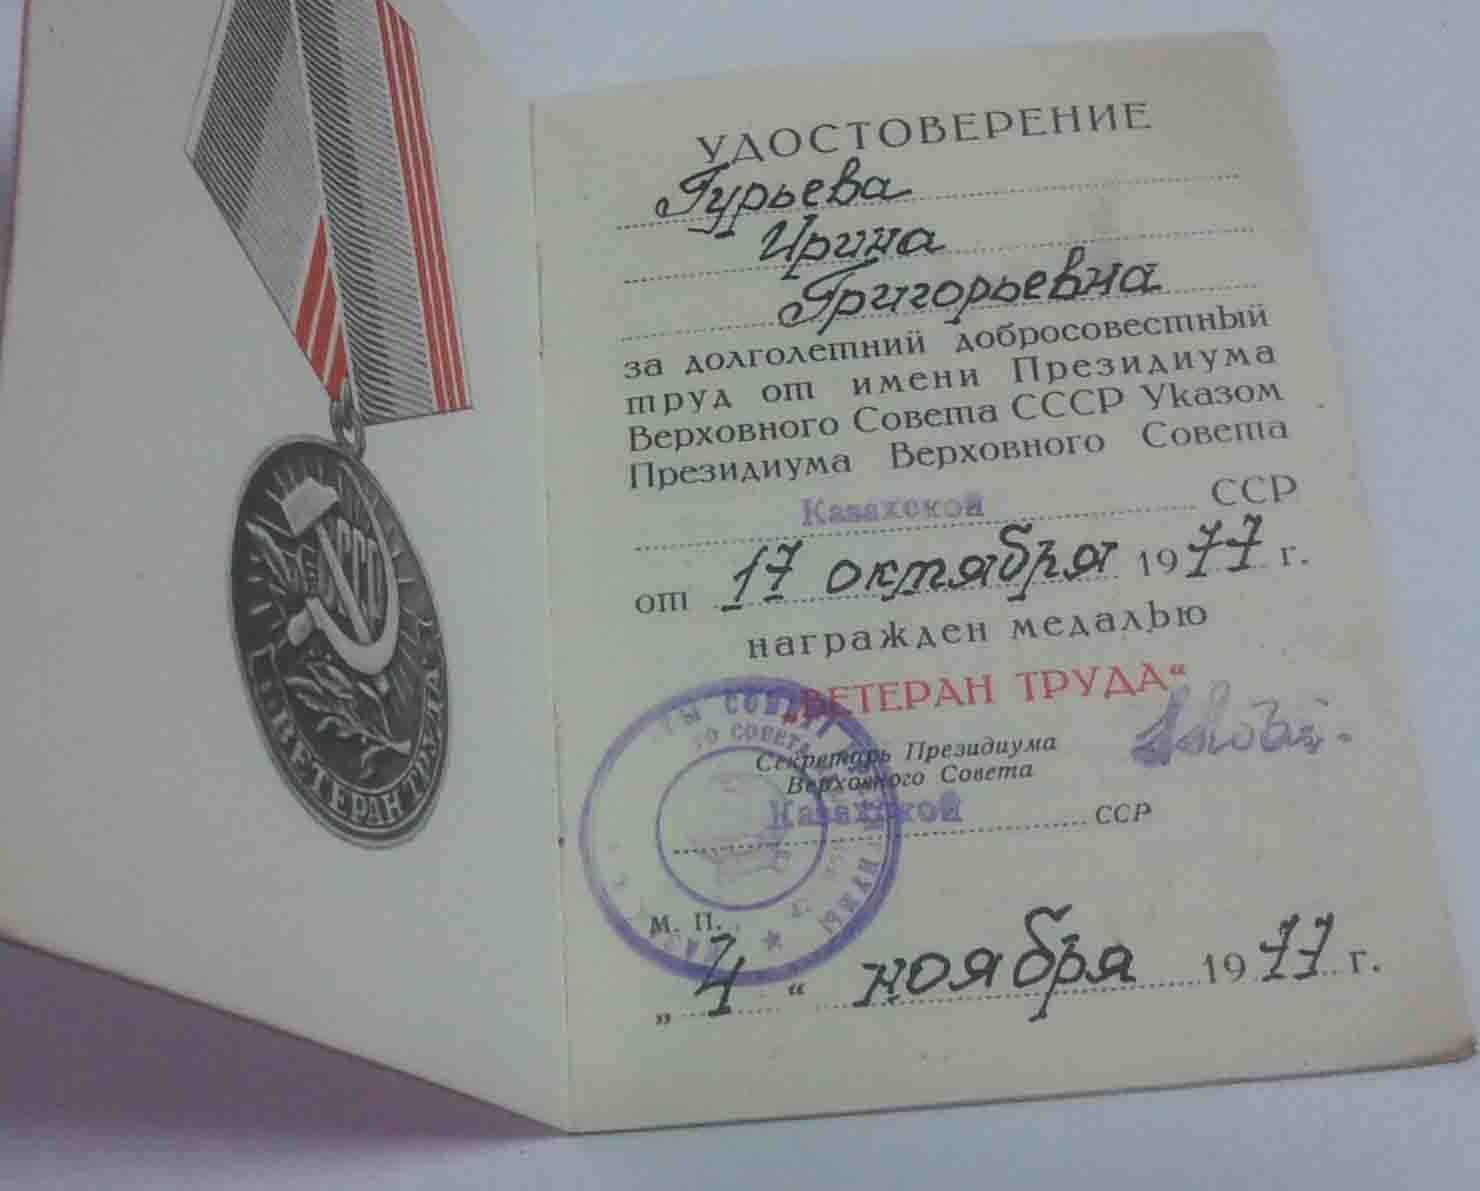 СССР
ВЕТЕРАН ТРУДА
УДОСТОВЕРЕНИЕ
Гурьева
Ирина
Григорьевна
за долголетний добросовестный
труд от имени Президиума
Верховного Совета СССР Указом
Президиума Верховного Совета
Казахской ССР
от 17 октября 1977 г.
награжден медалью
„ВЕТЕРАН ТРУДА“
Секретарь Президиума
Верховного Совета
Казахской ССР
М. П.
„ 4 “ ноября 1977 г.